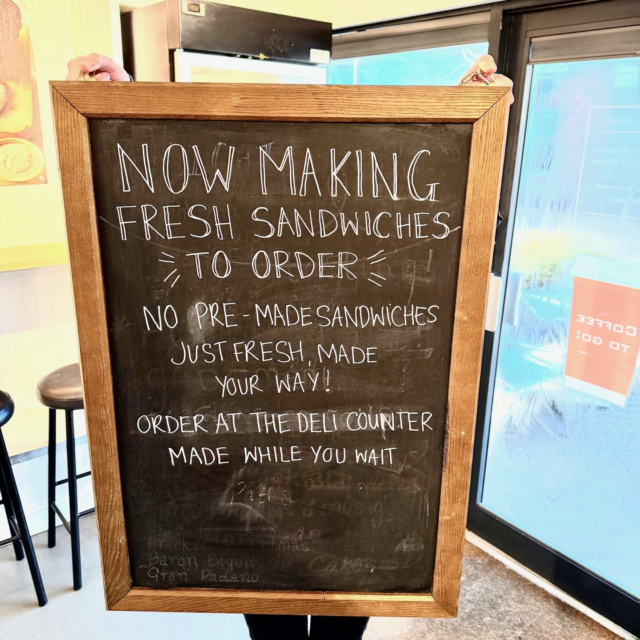 NOW MAKING
FRESH SANDWICHES
TO ORDER
NO PRE-MADE SANDWICHES
JUST FRESH, MADE
YOUR WAY!
ORDER AT THE DELI COUNTER
MADE WHILE YOU WAIT
Baron
Gran Padano
COFFEE
TO GO!